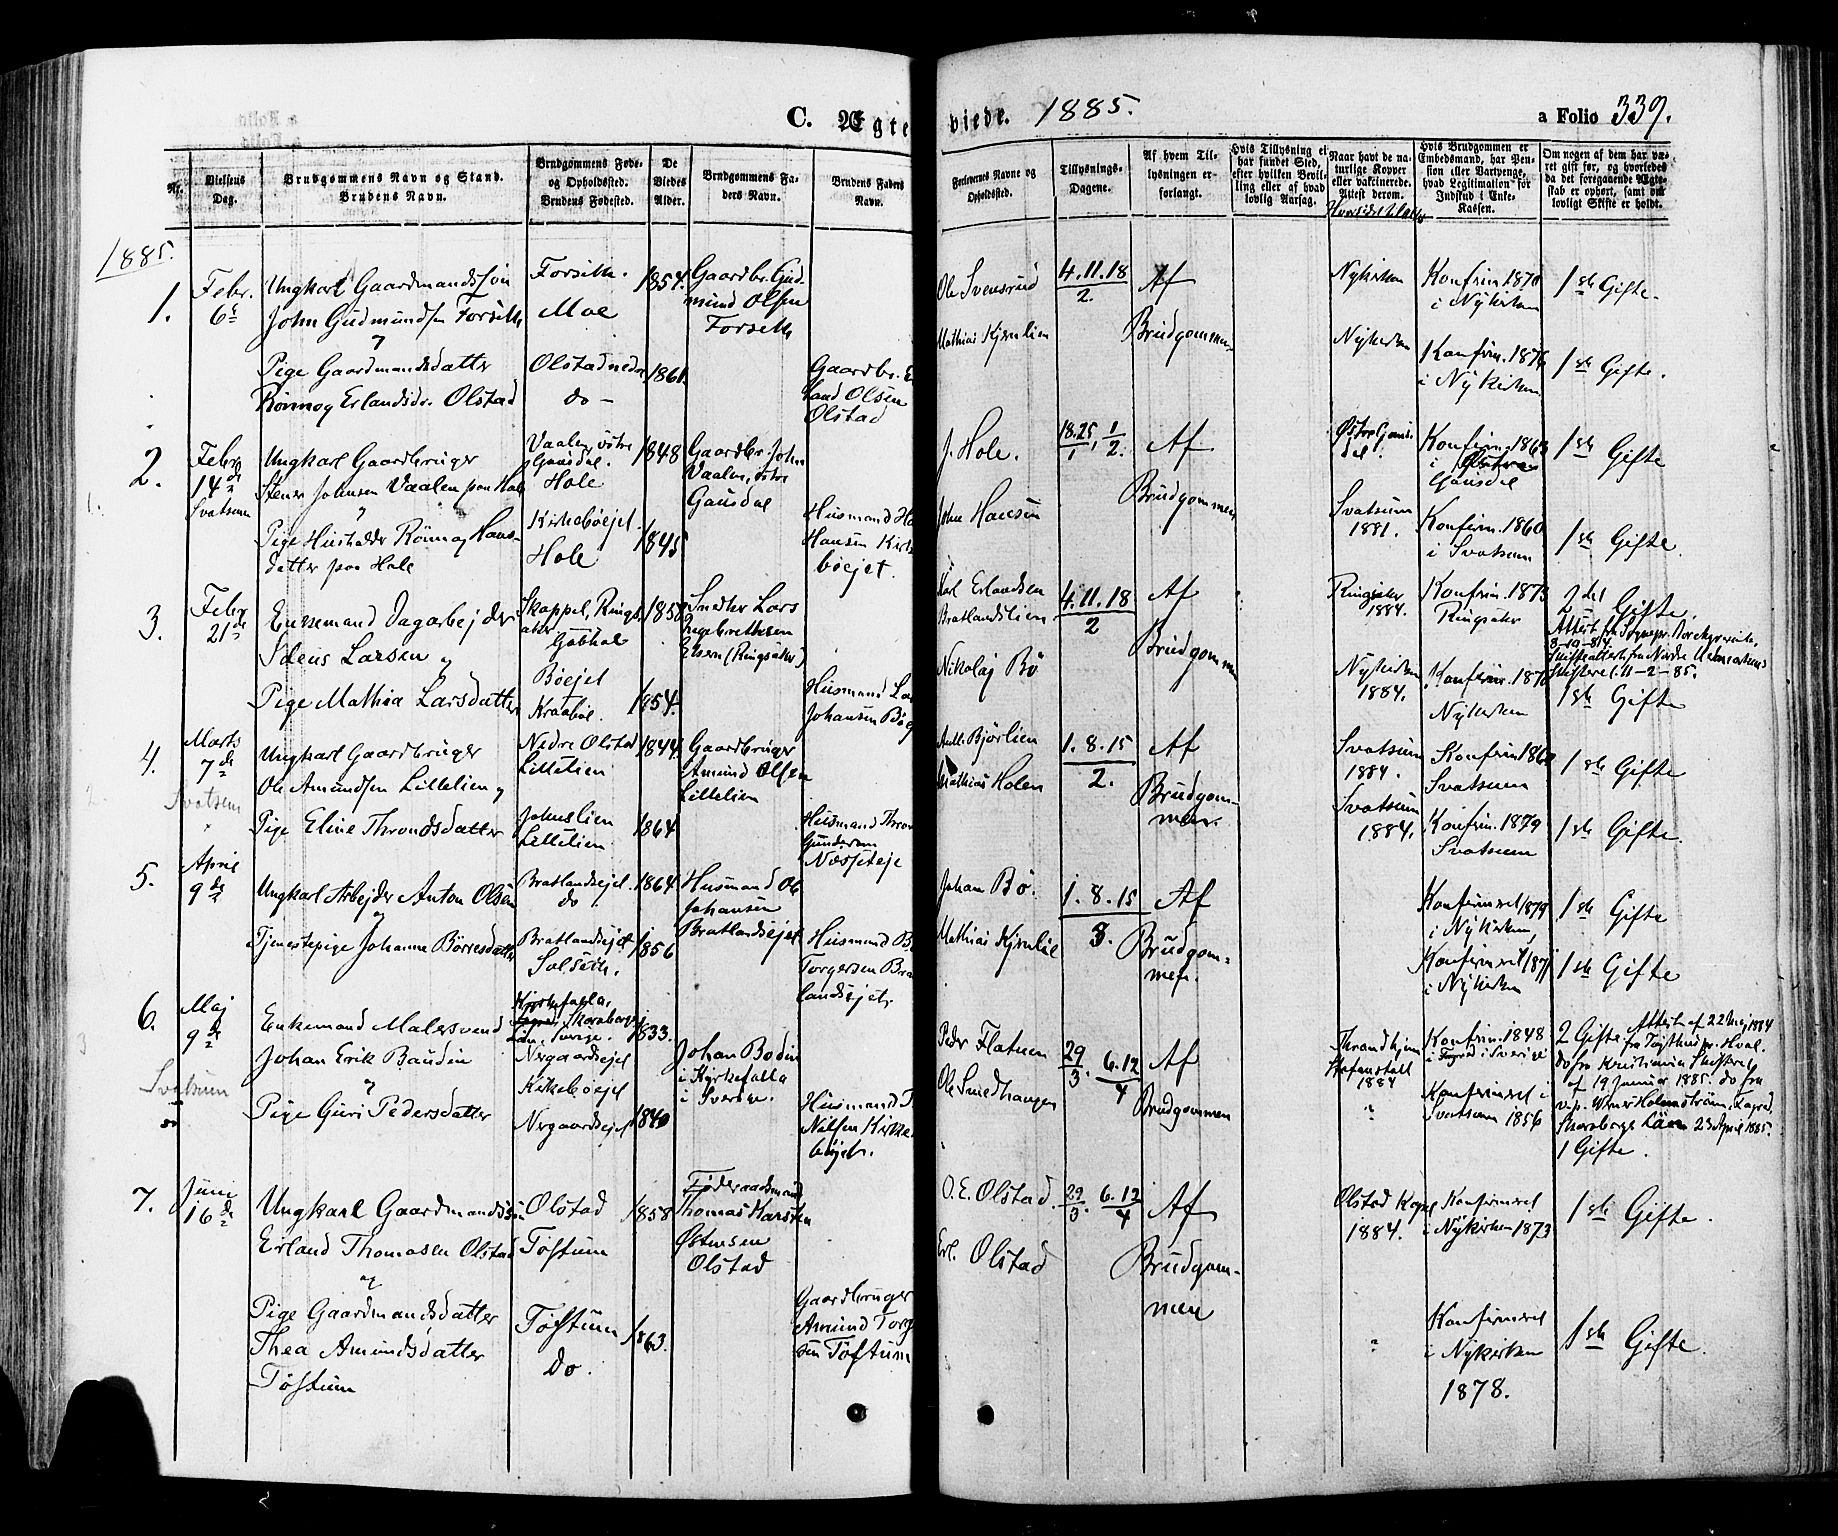 C. Ægte
viede. 1885.
a Folio 339.
Nr.
Vielsens Dag.
Brudgommens Navn og Stand. Brudens Navn.
Brudgommens Føde- og Opholdssted. Brudens Fødested.
De Viedes Alder.
Brudgommens Faders Navn.
Brudens Faders Navn.
Forlovernes Navne og Opholdssted.
Tillysnings-Dagene.
Af hvem Tillysningen er forlangt.
Hvis Tillysning ei har fundet Sted, efter hvilken Bevilling eller af hvad lovlig Aarsag.
Naar havt de naturlige Kopper eller vakcinerede. Attest derom.
Hvis Brudgommen er Embedsmand, har Pension eller Vartpenge, hvad Legitimation for Indskud i Enke-Kassen.
Om nogen af dem har været gift før, og hvorledes da det foregaaende Ægteskab er ophørt, samt om lovligt Skifte er holdt.
1885.
1.
Febr.
6te
Ungkarl Gaardmandssøn
John Gudmundsen Forseth
Forseth.
Moe
1854.
Gaardbr. Gud-
mund Olsen
Forseth
Ole Svensrud
4.11.18
2.
Af
Nykirken
Konfirm. 1870
i Nykirken
1ste Gifte.
Pige Gaardmandsdatter
Rønnog Erlandsdr. Olstad
Olstad nedre
do -
1861.
Gaardbr. E
land Olsen
Olstad
Mathias Kjernlien
Brudgommen
Nykirken
Konfirm. 1876
i Nykirken
1ste Gifte.
2.
Febr
14de
Svatsum
Ungkarl Gaardbruger
Stener Johnsen Vaalen paa Hole
Vaalen, østre
Gausdal.
Hole
1848
Gaardbr. John
Vaalen, østre
Gausdal
J. Hole.
18.25 1
1 2.
Af
Østre Gaus-
dal.
Konfirm. 1863
i Østre
Gausdal
1ste Gifte
Pige Husholdr Rønnog Hans-
datter paa Hole
Kirkebøejet
Hole
1845
Husmand Ha
Hansen Kirke
bøejet.
John Hansen
Brudgommen
Svatsum
1881.
Konfirm. 1860
i Svatsum
1ste Gifte.
3.
Febr
21de
Enkemand Dagarbejder
Larsen
Skappel, Rings-
aker
1850
Lars
Ingebrethsen
(Ringsaker)
Karl Erlandsen
Bratlandslien
4.11.18
2
Af
Ringsaker
1884.
Konfirm. 1873
Ringsaker
2det Gifte,
Pige Mathia Larsdatter
Bøejet
Kraabøl.
1854.
Husmand La
Johansen Bøej
Nikolaj Bø
Brudgommen
Nykirken
1884.
Konfirm. 1870
Nykirken
1ste Gifte
4.
Marts
7de
Svatsum
Ungkarl Gaardbruger
Ole Amundsen Lillelien
Nedre Olstad
Lillelien
1844
Gaardbruger
Amund Olsen
Lillelien
Bjørlien
1.8.15
2.
Af
Svatsum
1884.
Konfirm. 1860
Svatsum
1ste Gifte
Pige Eline Throndsdatter
Johnslien
Lillelien
1864
Husmand Thron
Gundersen
Næsseteje
Mathias Holen
Brudgom-
men.
Svatsum
1884.
Konfirm. 1879
Svatsum
1ste Gifte.
5.
April
9de
Ungkarl Arbejder Anton Olsen
Bratlandsejet.
do.
1864
Husmand Ole
Johansen
Bratlandsejet
Johan Bø.
1.8.15
3.
Af
Konfirmeret 1879
i Nykirken,
1ste Gifte
Tjenestepige Johanne Børresdatter
Bratlandsejet
Solseth.
1856
Husmand B
Torgersen Bra
landsejet.
Mathias Kjernlie
Brudgom-
men.
Konfirmeret 1871
i Nykirken
1ste Gifte
6.
Maj
9de
Svatsum
Enkemand Malersvend
Johan Erik Baudin
Kyrkefalla,
Skaraborgs
Län, Sverige.
Nergaardsejet
1833.
Johan Bodin
i Kyrkefalla
i Sverige.
Peder Flatuen
29 6.12
3. 4
Af
Throndhjem
1884
Konfirm. 1848
i Sverige
2 Gifte Attest af 22 Maj 1884
fra Kristiania Skifteret
af 19 Januar 1885. do fra
Skaraborgs Län 23 April 1885.
Pige Guri Pedersdatter
Kirkebøejet
Nergaardsejet
1840
Husmand P
Nilsen Kirke
bøjet.
Ole Smedhaugen
Brudgommen
"
Konfirmeret i
Svatsum 1856
1 Gifte.
7.
Juni
16de
Ungkarl Gaardmandssøn
Erland Thomasen Olstad
og
Olstad
Tøftum
1858
Føderaadsmand
Thomas Karsten
Østensen
Olstad
O. E. Olstad.
29 6.12
3. 4
Af
Olstad
1884.
Konfirmeret
i Nykirken 1873
1ste Gifte.
Pige Gaardmandsdatter
Thea Amundsdatter
Tøftum
Tøftum
do.
1863.
Gaardbruger
Amund Torg
sen Tøftum
Erl. Olstad
Brudgom-
men
"
Konfirmeret
i Nykirken
1878.
1ste Gifte.